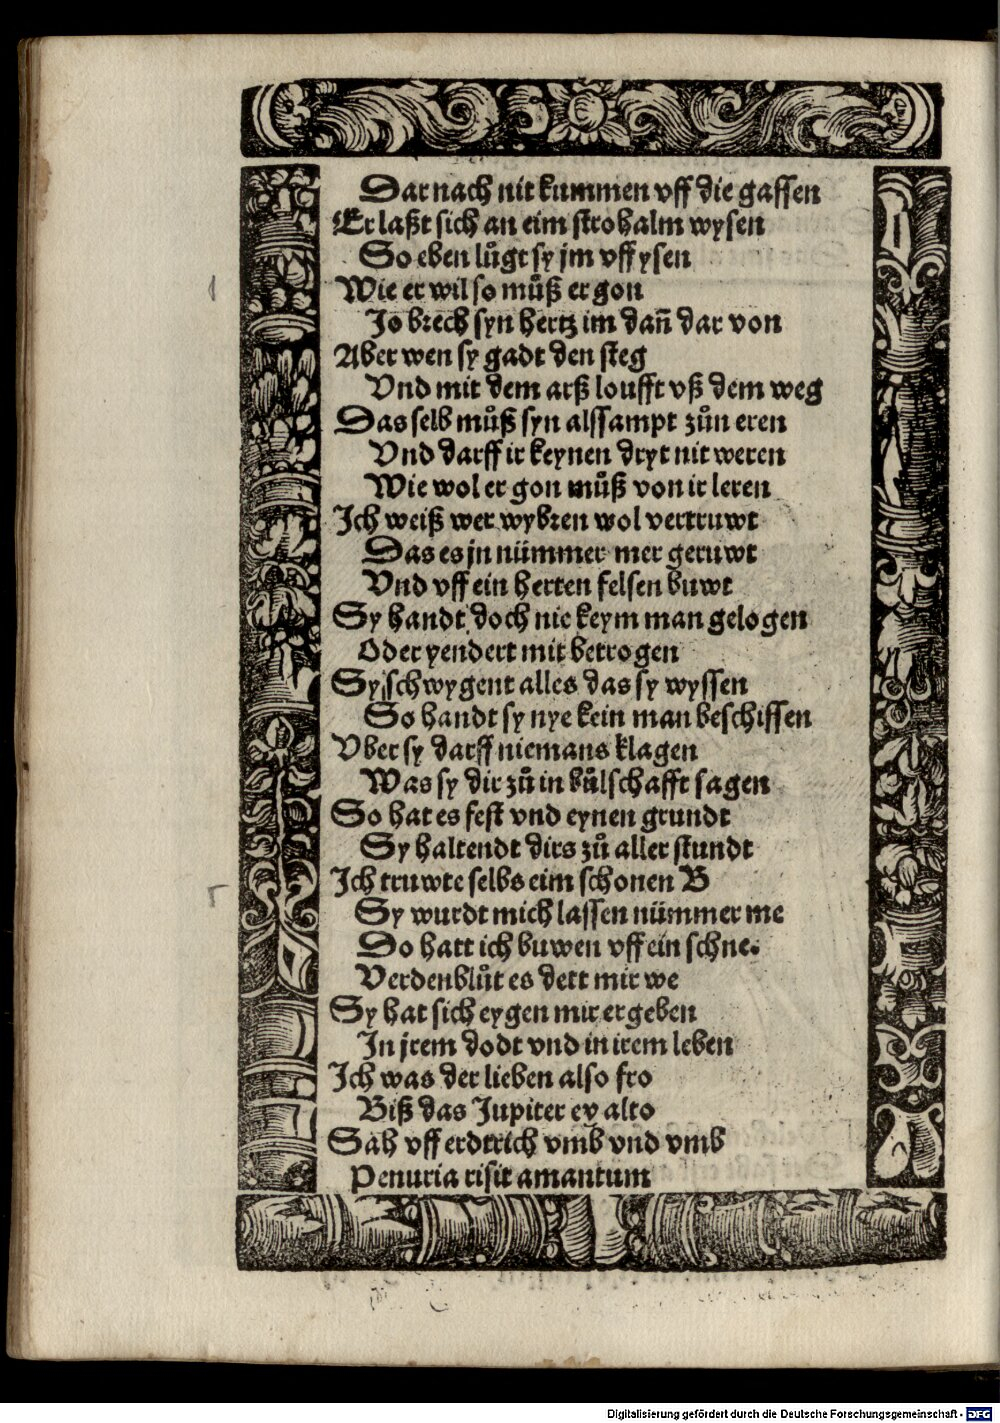 Dar nach nit kummen vff die gassen
Er laßt sich an eim strohalm wysen
So eben lůgt sy jm vff ysen
Wie er wil so můß er gon
Jo brech syn hertz im dañ dar von
Aber wen sy gadt den steg
Vnd mit dem arßloufft vß dem weg
Das selb můß syn alssampt zůn eren
Vnd darff ir keynen dryt nit weren
Wie wol er gon můß von ir leren
Ich weiß wer wybren wol vertruwt
Das es jn nümmer mer geruwt
Vnd vff ein herten felsen buwt
Sy handt doch nie keym man gelogen
Oder yendert mit betrogen
Sy schwygent alles das sy wyssen
So handt sy nye kein man beschissen
Vber sy darff niemans klagen
Was sy dir zů in bůlschafft sagen
So hat es fest vnd eynen grundt
Sy haltendt dirs zů aller stundt
Ich truwte selbs eim schonen B
Sy wurdt mich lassen nümmer me
Do hatt ich buwen vff ein schne.
Verdenblůt es dett mir we
Sy hat sich eygen mir ergeben
In jrem dodt vnd in irem leben
Ich was der lieben also fro
Biß das Jupiter ey alto
Sah vff erdtrich vmb vnd vmb
Penuria risit amantum
Digitalisierung gefördert durch die Deutsche Forschungsgemeinschaft - DFG